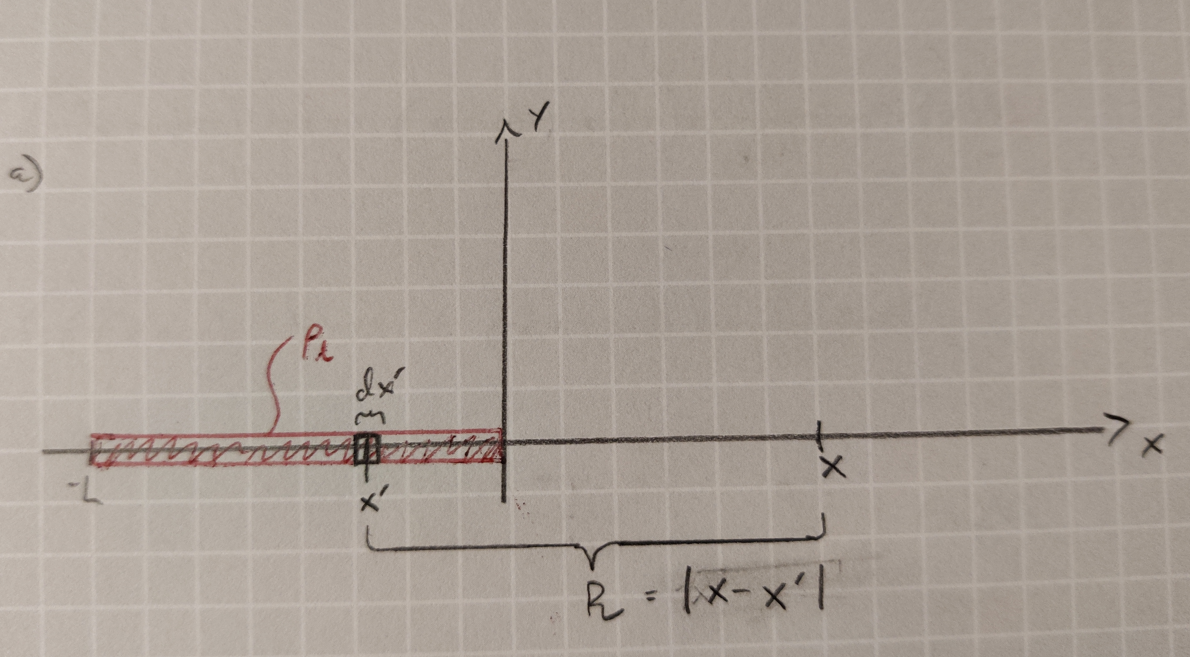 a)
Y
ρₗ
dx'
-L
x'
x
x
R = |x-x'|